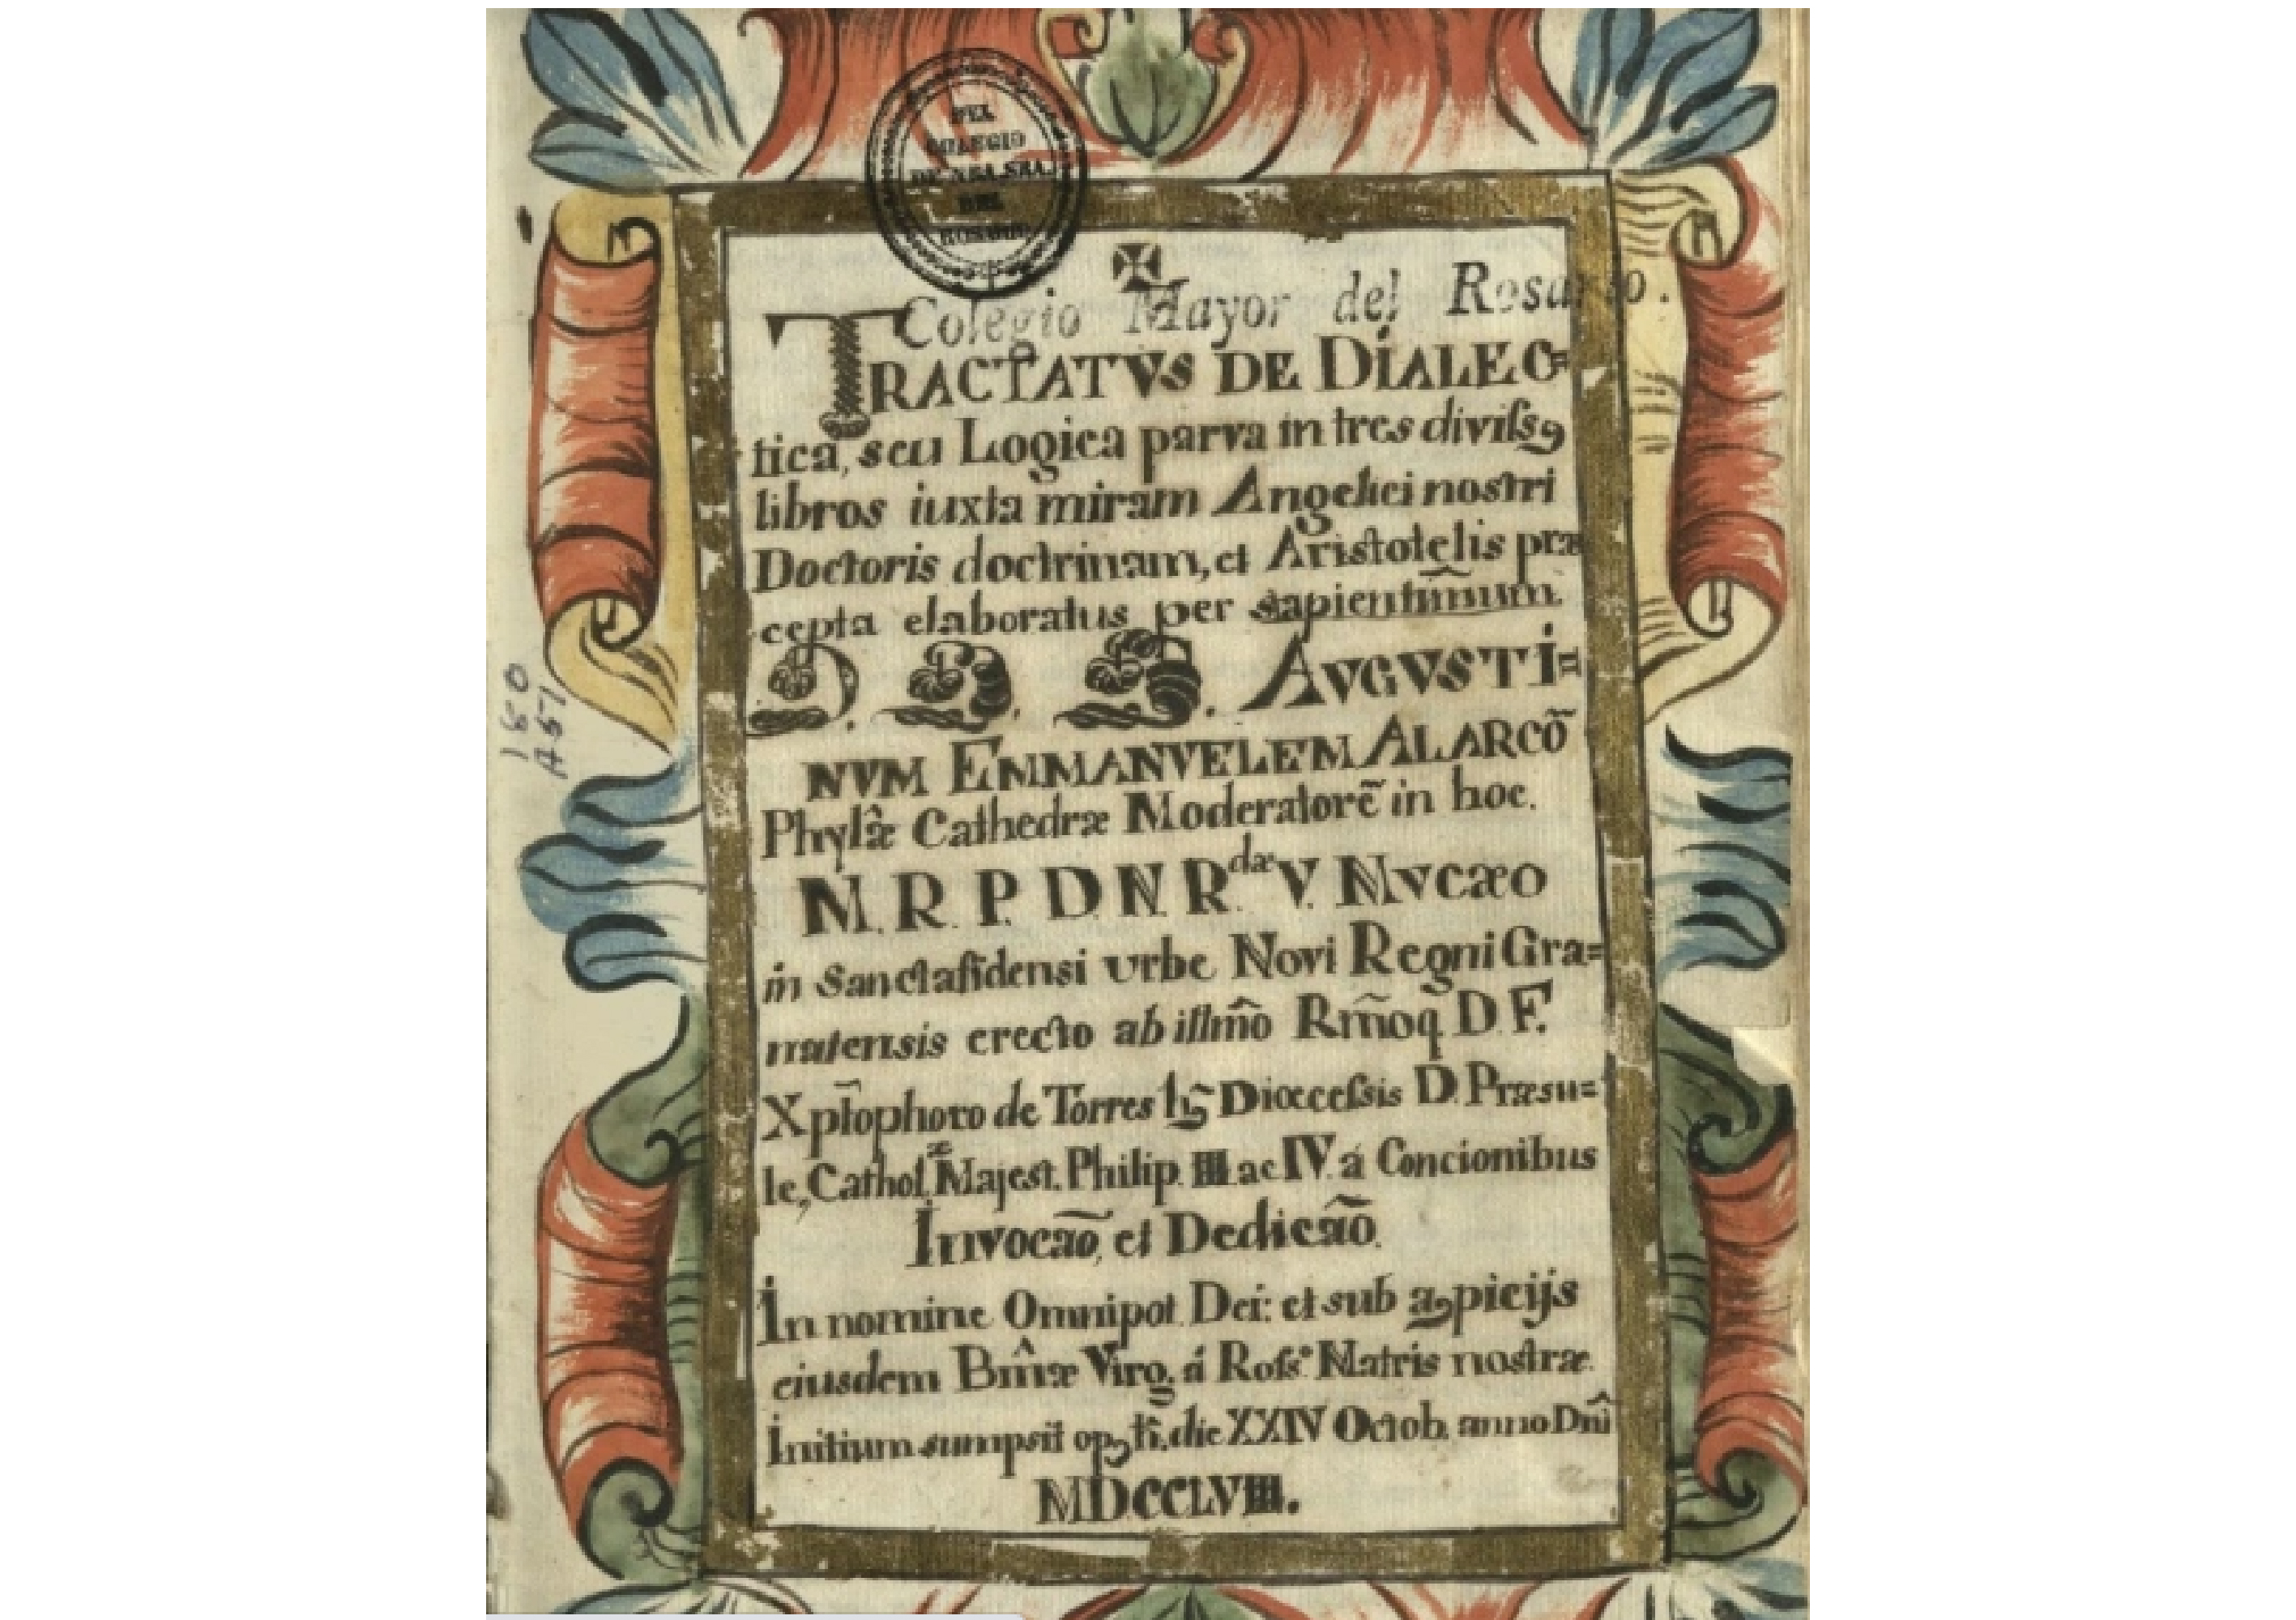 DEL
COLEGIO
DE NRA. SRA.
DEL
ROSARIO
Colegio Mayor del Rosario.
TRACTATVS DE DIALEC=
tica, seu Logica parva in tres divissꝰ
libros iuxta miram Angelici nostri
Doctoris doctrinam, et Aristotelis præ
cepta elaboratus per sapientim̃um.
D. D. D. AVGVSTI=
NVM EMMANVELEM ALARCÕ
Phylâe Cathedræ Moderatorẽ in hoc.
M. R. P. D. N. R.dæ V. Mvcæo
in Sanctafidensi vrbe Novi Regni Gra=
natensis erecto ab illm̃o Rm̃oq̃ D. F.
Xpt̃ophoro de Torres Diœcessis D. Præsu=
le, Cathol.æ Majest. Philip. III ac IV. á Concionibus
Invocaõ, et Dedicaõ.
In nomine Omnipot. Dei: et sub aꝰpicijs
eiusdem Bm̂æ Virg. á Rosso. Matris nostræ.
Initium sumpsit opꝰ die XXIV Octob. anno Dnî
MDCCLVIII.
180
A57